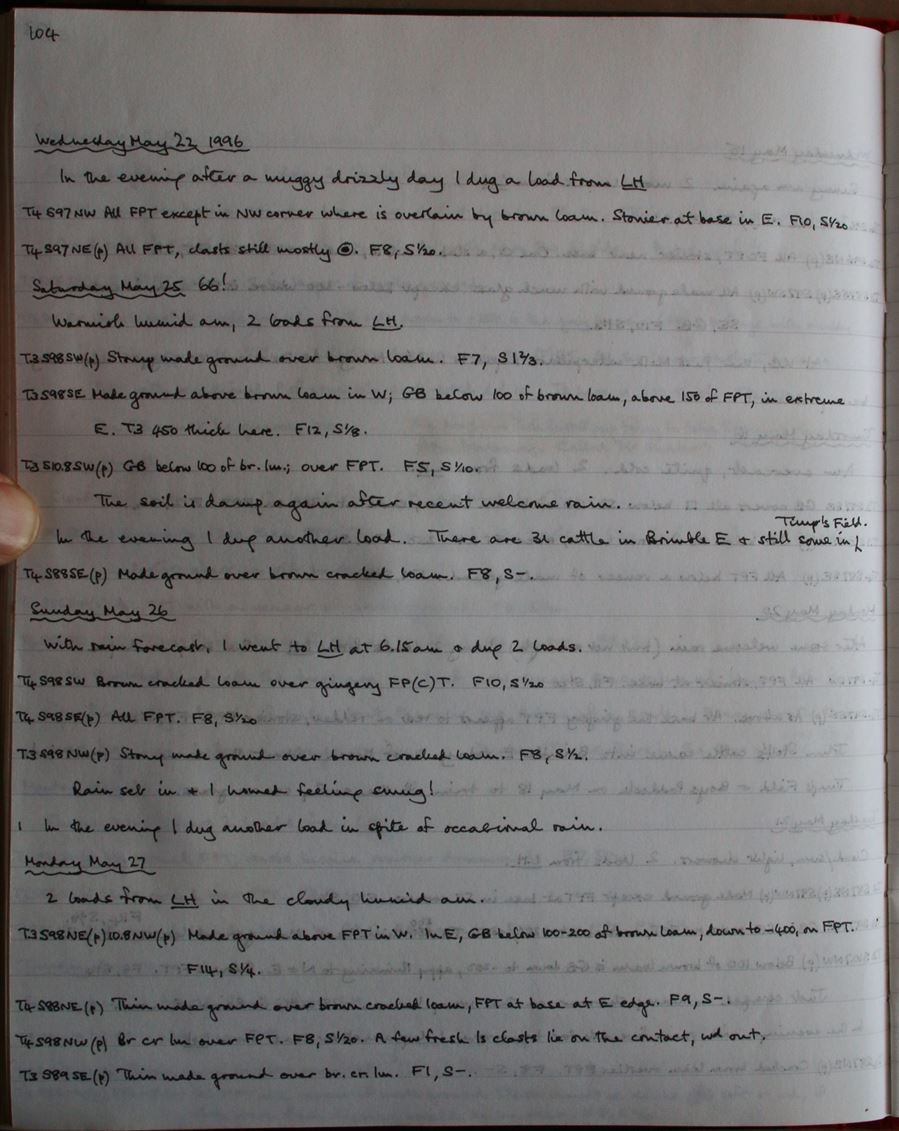 104
Wednesday May 22 1996
In the evening after a muggy drizzly day I dug a load from LH
T4 S97NW All FPT except in NW corner where is overlain by brown loam. Stonier at base in E. F10, S1/20
T4 S97NE(p) All FPT, clasts still mostly @. F8, S1/20.
Saturday May 25 66!
Warmish humid am, 2 loads from LH.
T3 S98SW(p) Stony made ground over brown loam. F7, S1 2/3.
T3 S98SE Made ground above brown loam in W; GB below 100 of brown loam, above 150 of FPT, in extreme
E. T3 450 thick here. F12, S1/8.
T3 S10.8SW(p) GB below 100 of br. lm.; over FPT. F5, S1/10.
The soil is damp again after recent welcome rain.
Timp's Field.
In the evening I dug another load. There are 31 cattle in Brimble E & still some in
T4 S88SE(p) Made ground over brown cracked loam. F8, S-.
Sunday May 26
With rain forecast, I went to LH at 6.15am & dug 2 loads.
T4 S98SW Brown cracked loam over gingery FP(C)T. F10, S1/20
T4 S98SE(p) All FPT. F8, S1/20
T3 S98NW(p) Stony made ground over brown cracked loam. F8, S1/2.
Rain set in & I homed feeling smug!
1 In the evening I dug another load in spite of occasional rain.
Monday May 27
2 loads from LH in the cloudy humid am.
T3 S98NE(p)10.8NW(p) Made ground above FPT in W. In E, GB below 100-200 of brown loam, down to -400, on FPT.
F14, S1/4.
T4 S88NE(p) Thin made ground over brown cracked loam, FPT at base at E edge. F9, S-.
T4 S98NW(p) Br cr lm over FPT. F8, S1/20. A few fresh ls clasts lie on the contact, wd out.
T3 S89SE(p) Thin made ground over br. cr. lm. F1, S-.